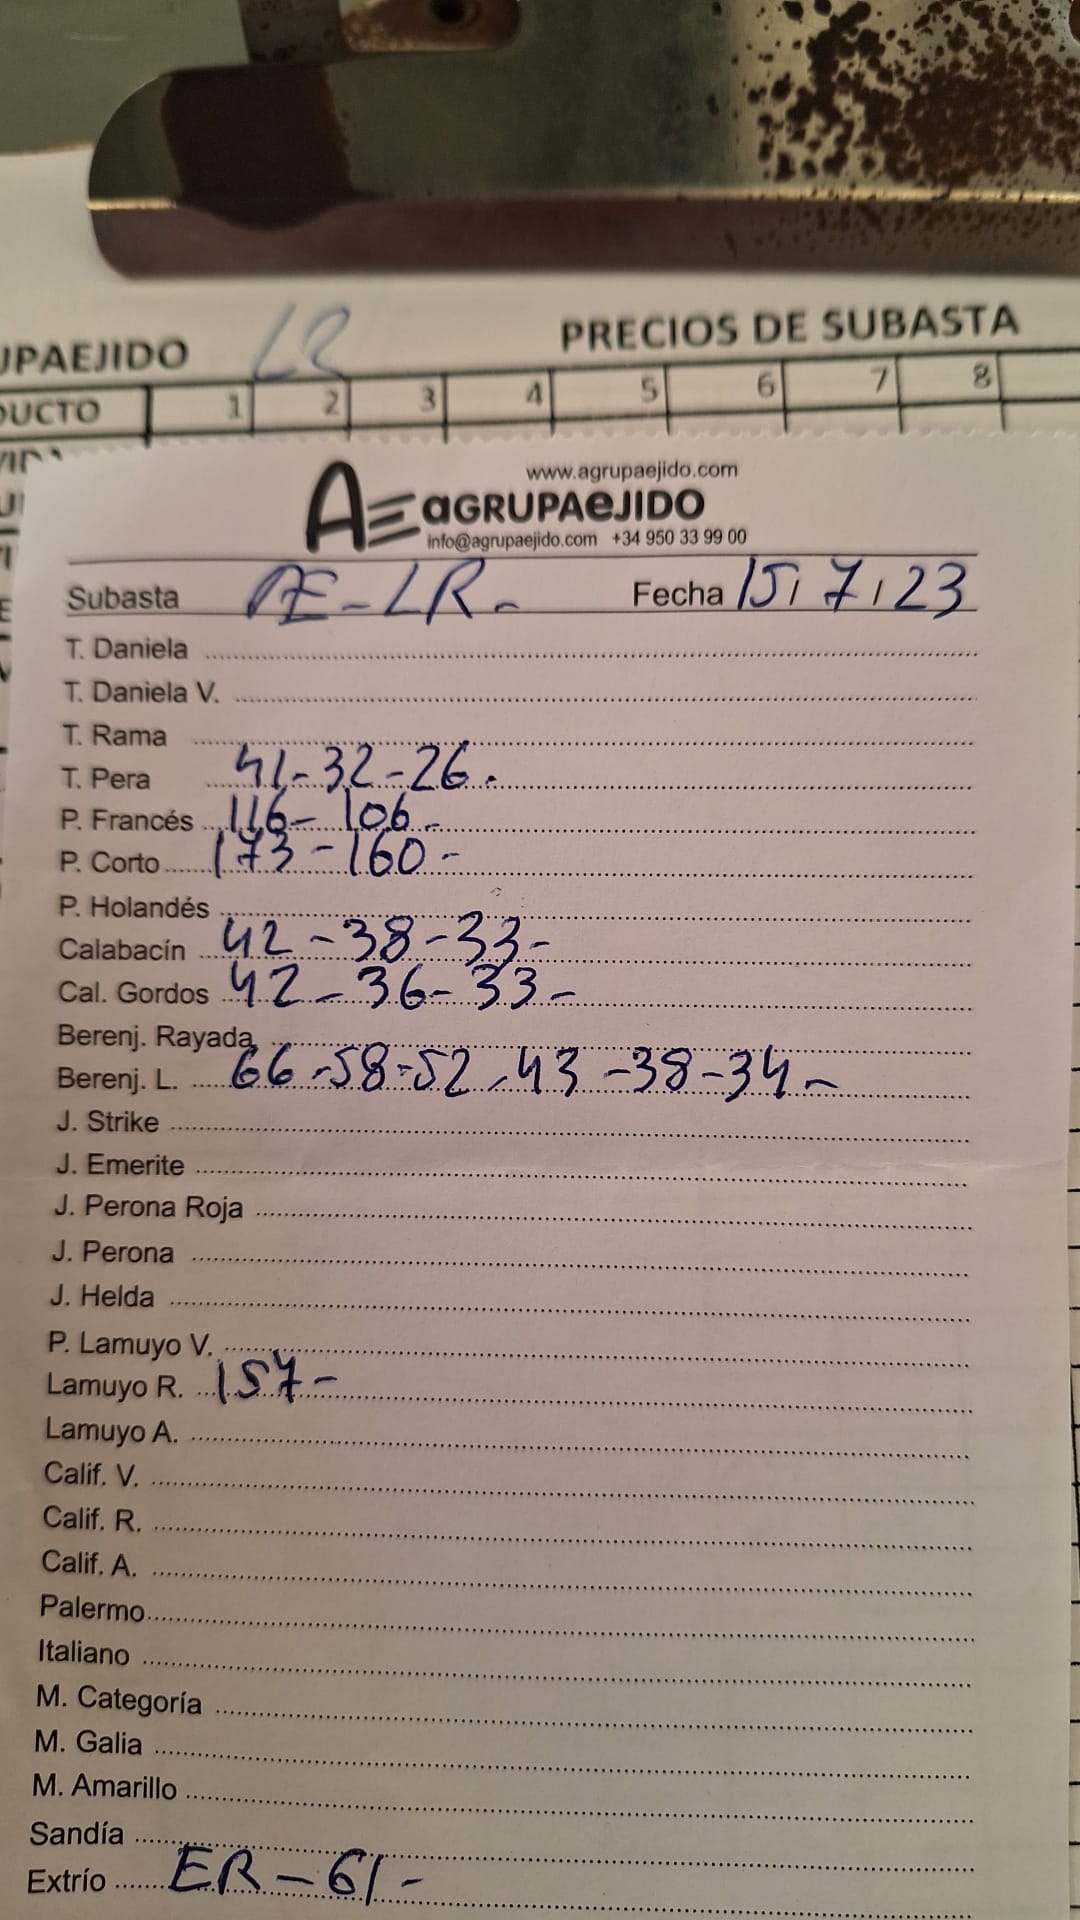 UPAEJIDO LR PRECIOS DE SUBASTA
DUCTO 1 2 3 4 5 6 7 8
www.agrupaejido.com
AE aGRUPAeJIDO
info@agrupaejido.com +34 950 33 99 00
Subasta AE - LR - Fecha 15/7/23
T. Daniela
T. Daniela V.
T. Rama
T. Pera 41-32-26-
P. Francés 116-106-
P. Corto 173-160-
P. Holandés
Calabacín 42-38-33-
Cal. Gordos 42-36-33-
Berenj. Rayada
Berenj. L. 66-58-52-43-38-34-
J. Strike
J. Emerite
J. Perona Roja
J. Perona
J. Helda
P. Lamuyo V.
Lamuyo R. 157-
Lamuyo A.
Calif. V.
Calif. R.
Calif. A.
Palermo
Italiano
M. Categoría
M. Galia
M. Amarillo
Sandía
Extrío ER-61-